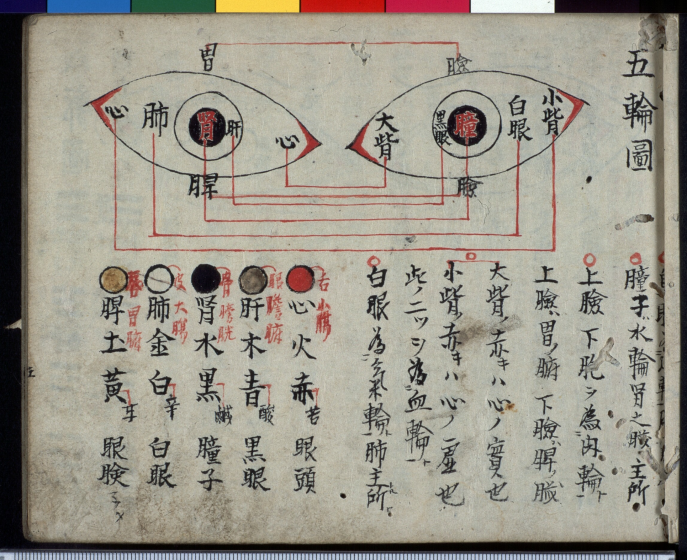 五輪圖
胃
瞼
小眥
白眼
瞳
黒眼
大眥
瞼
心
肝
腎
肺
心
脾
瞳子水輪腎之臓主所
上瞼下胞ヲ為肉輪ト
上瞼ハ胃ノ腑下瞼ハ脾臓
大眥ノ赤キハ心ノ實也
小眥ノ赤キハ心ノ虚也
此ニツヲ為血輪ト
白眼為氣輪肺主所
舌小膓
心火赤苦眼頭
眼膽腑
肝木青酸黒眼
骨膀胱
腎水黒鹹瞳子
皮大膓
肺金白辛白眼
胃腑
脾土黃甘眼瞼